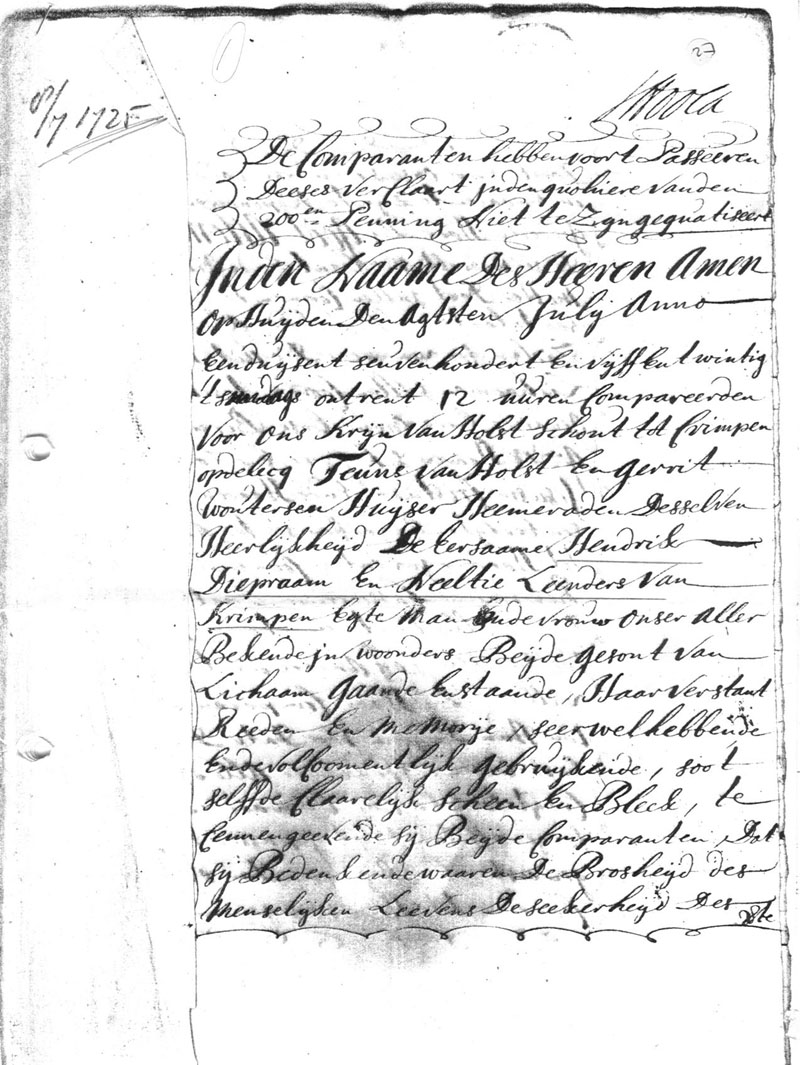 27
8/7 1725
De Comparanten hebben voort Passeeren
Deeses verClaart inden quohiere vanden
200en Penning Niet te Zijn gequatiseert
Inden Naame Des Heeren Amen
Op Huijden Den Agtsten Julij Anno
Eenduijsent seuvenhondert En vijff En twintig
ontrent 12 uuren Compareerden
Voor Ons Krijn Van Holst Schout tot Crimpen
opdelecq Teuns Van Holst En gerrit
Woutersen Huijser Heemeraden Desselven
Heerlijkheijd De Eersaame Hendrik
Diepraam En Neeltie Leenders Van
Krimpen Egte Man Ende vrouw Onser Aller
Bekende jnwoonders Beijde gesont van
Lichaam gaande Enstaande, Haar verstant
Reeden En Memorije seer wel hebbende
Endevolcoomentlijk gebruijkende, soot
selffde Claarelijk scheen En Bleek, te
Cennengeevende sij Beijde Comparanten, Dat
sij Bedenkende waaren De Brosheijd des
Menselijken Leevens Deseekerheijd Des